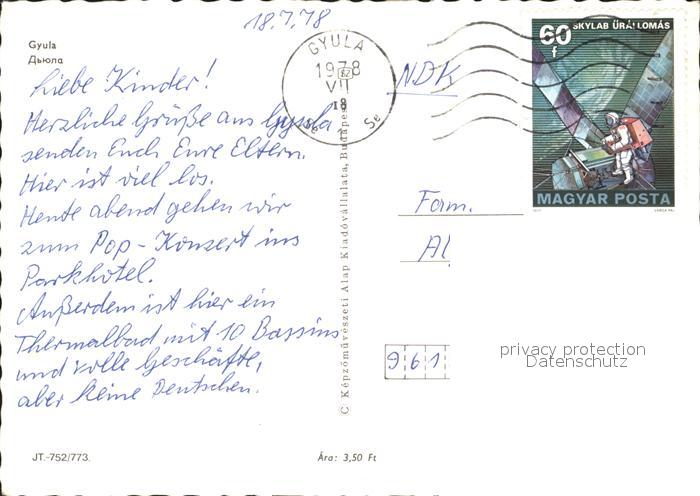 18.7.78
Gyula
Дьюла
GYULA
1978
VII
18
60 f
SKYLAB ŰRÁLLOMÁS
MAGYAR POSTA
NDK
Liebe Kinder!
Herzliche Grüße aus Gyula
senden Euch Eure Eltern.
Hier ist viel los.
Heute abend gehen wir
zum Pop-Konzert ins
Parkhotel.
Außerdem ist hier ein
Thermalbad mit 10 Bassins
und volle Geschäfte,
aber keine Deutschen.
© Képzőművészeti Alap Kiadóvállalata, Budapest
Fam.
Al
961
privacy protection
Datenschutz
JT.-752/773.
Ára: 3,50 Ft